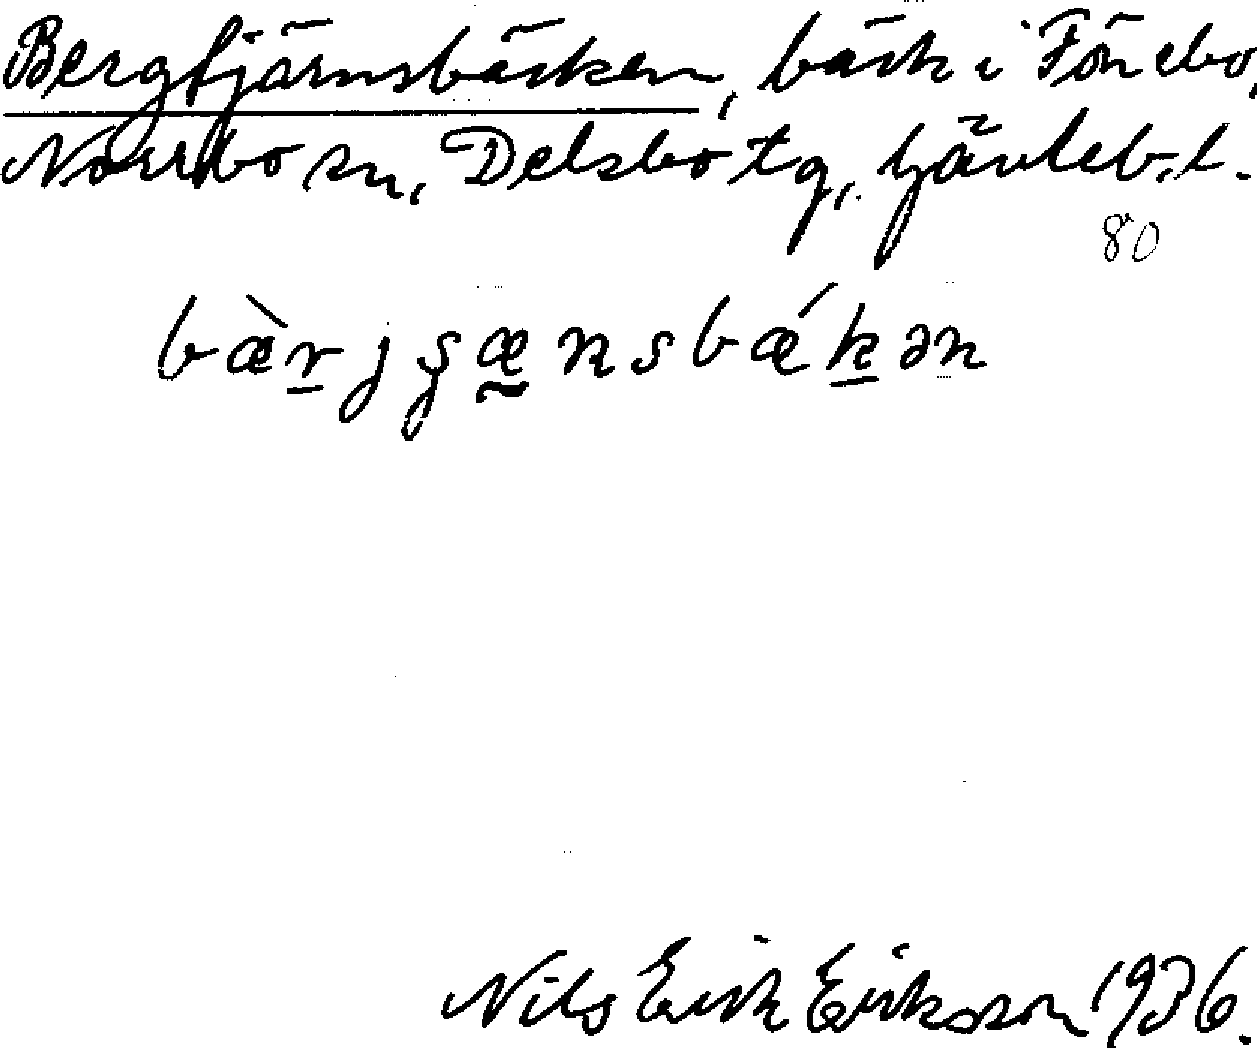 Bergtjärnsbäcken, bäck i Fönebo,
Norrbo sn, Delsbo tg, Gävleb. l.
80
bæ̀r̲jʂæ̰nsbǽk̲ən
Nils Erik Eriksson 1936.